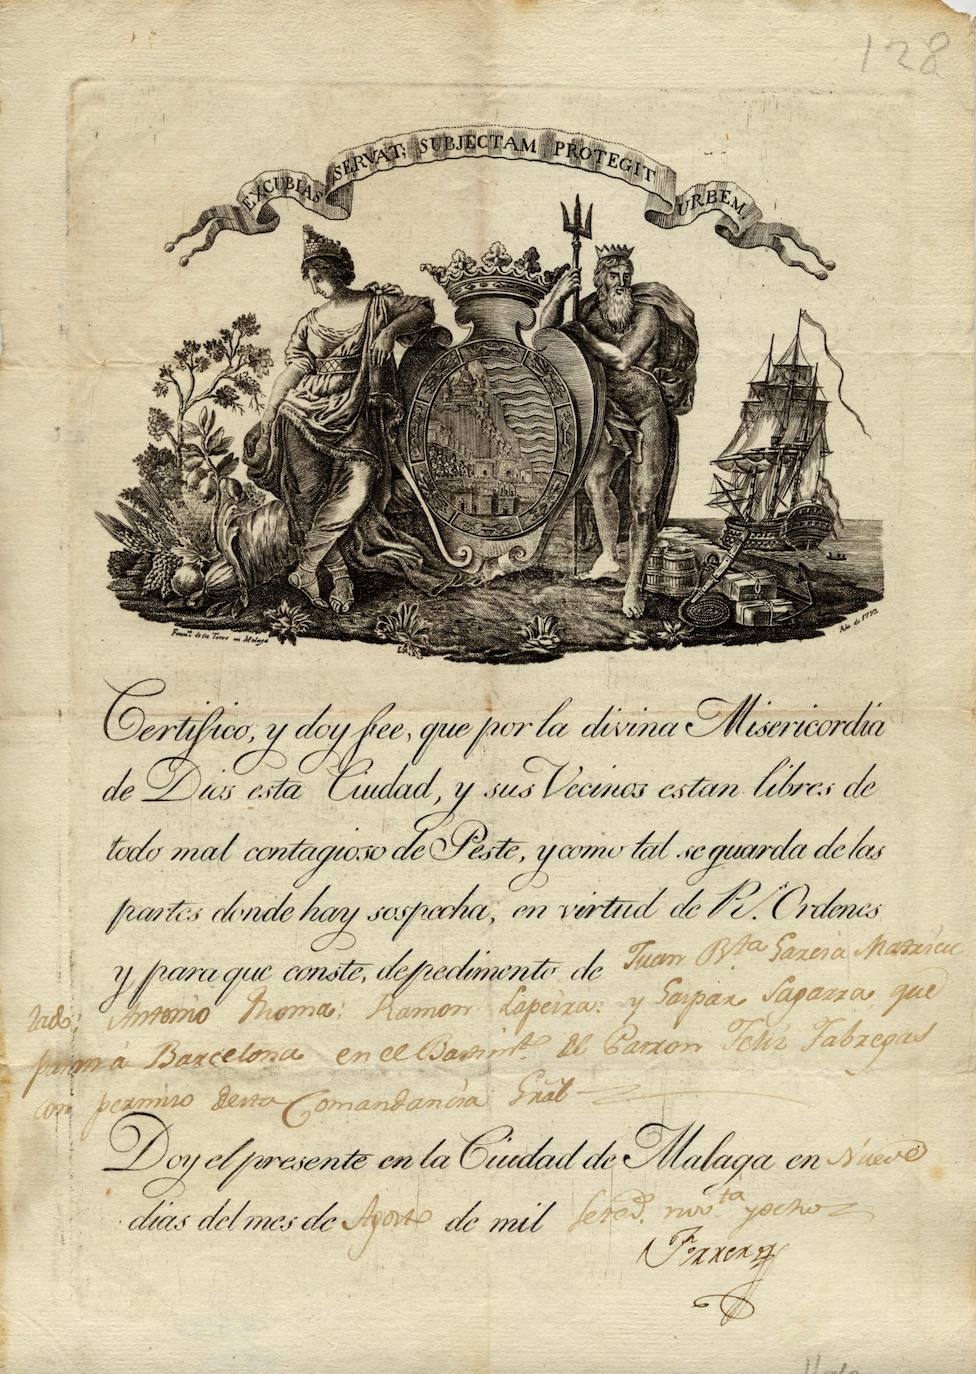 128
EXCUBIAS SERVAT; SUBJECTAM PROTEGIT URBEM
Franco. de la Torre en Malaga
Año de 1792
Certifico, y doy fee, que por la divina Misericordia
de Dios esta Ciudad, y sus Vecinos estan libres de
todo mal contagioso de Peste, y como tal se guarda de las
partes donde hay sospecha, en virtud de Rs. Ordenes
y para que conste, de pedimento de Juan Bta Garcia Matricu
lado; Antonio Roma; Ramon Lapeira: y Gaspar Sagarra, que
pasan á Barcelona en el Bastimto. del Patron Feliz Fabregas
con permiso desta Comandancia Gral
Doy el presente en la Ciudad de Malaga en Nueve
dias del mes de Agosto de mil seteds. novta y ocho
Ferrer